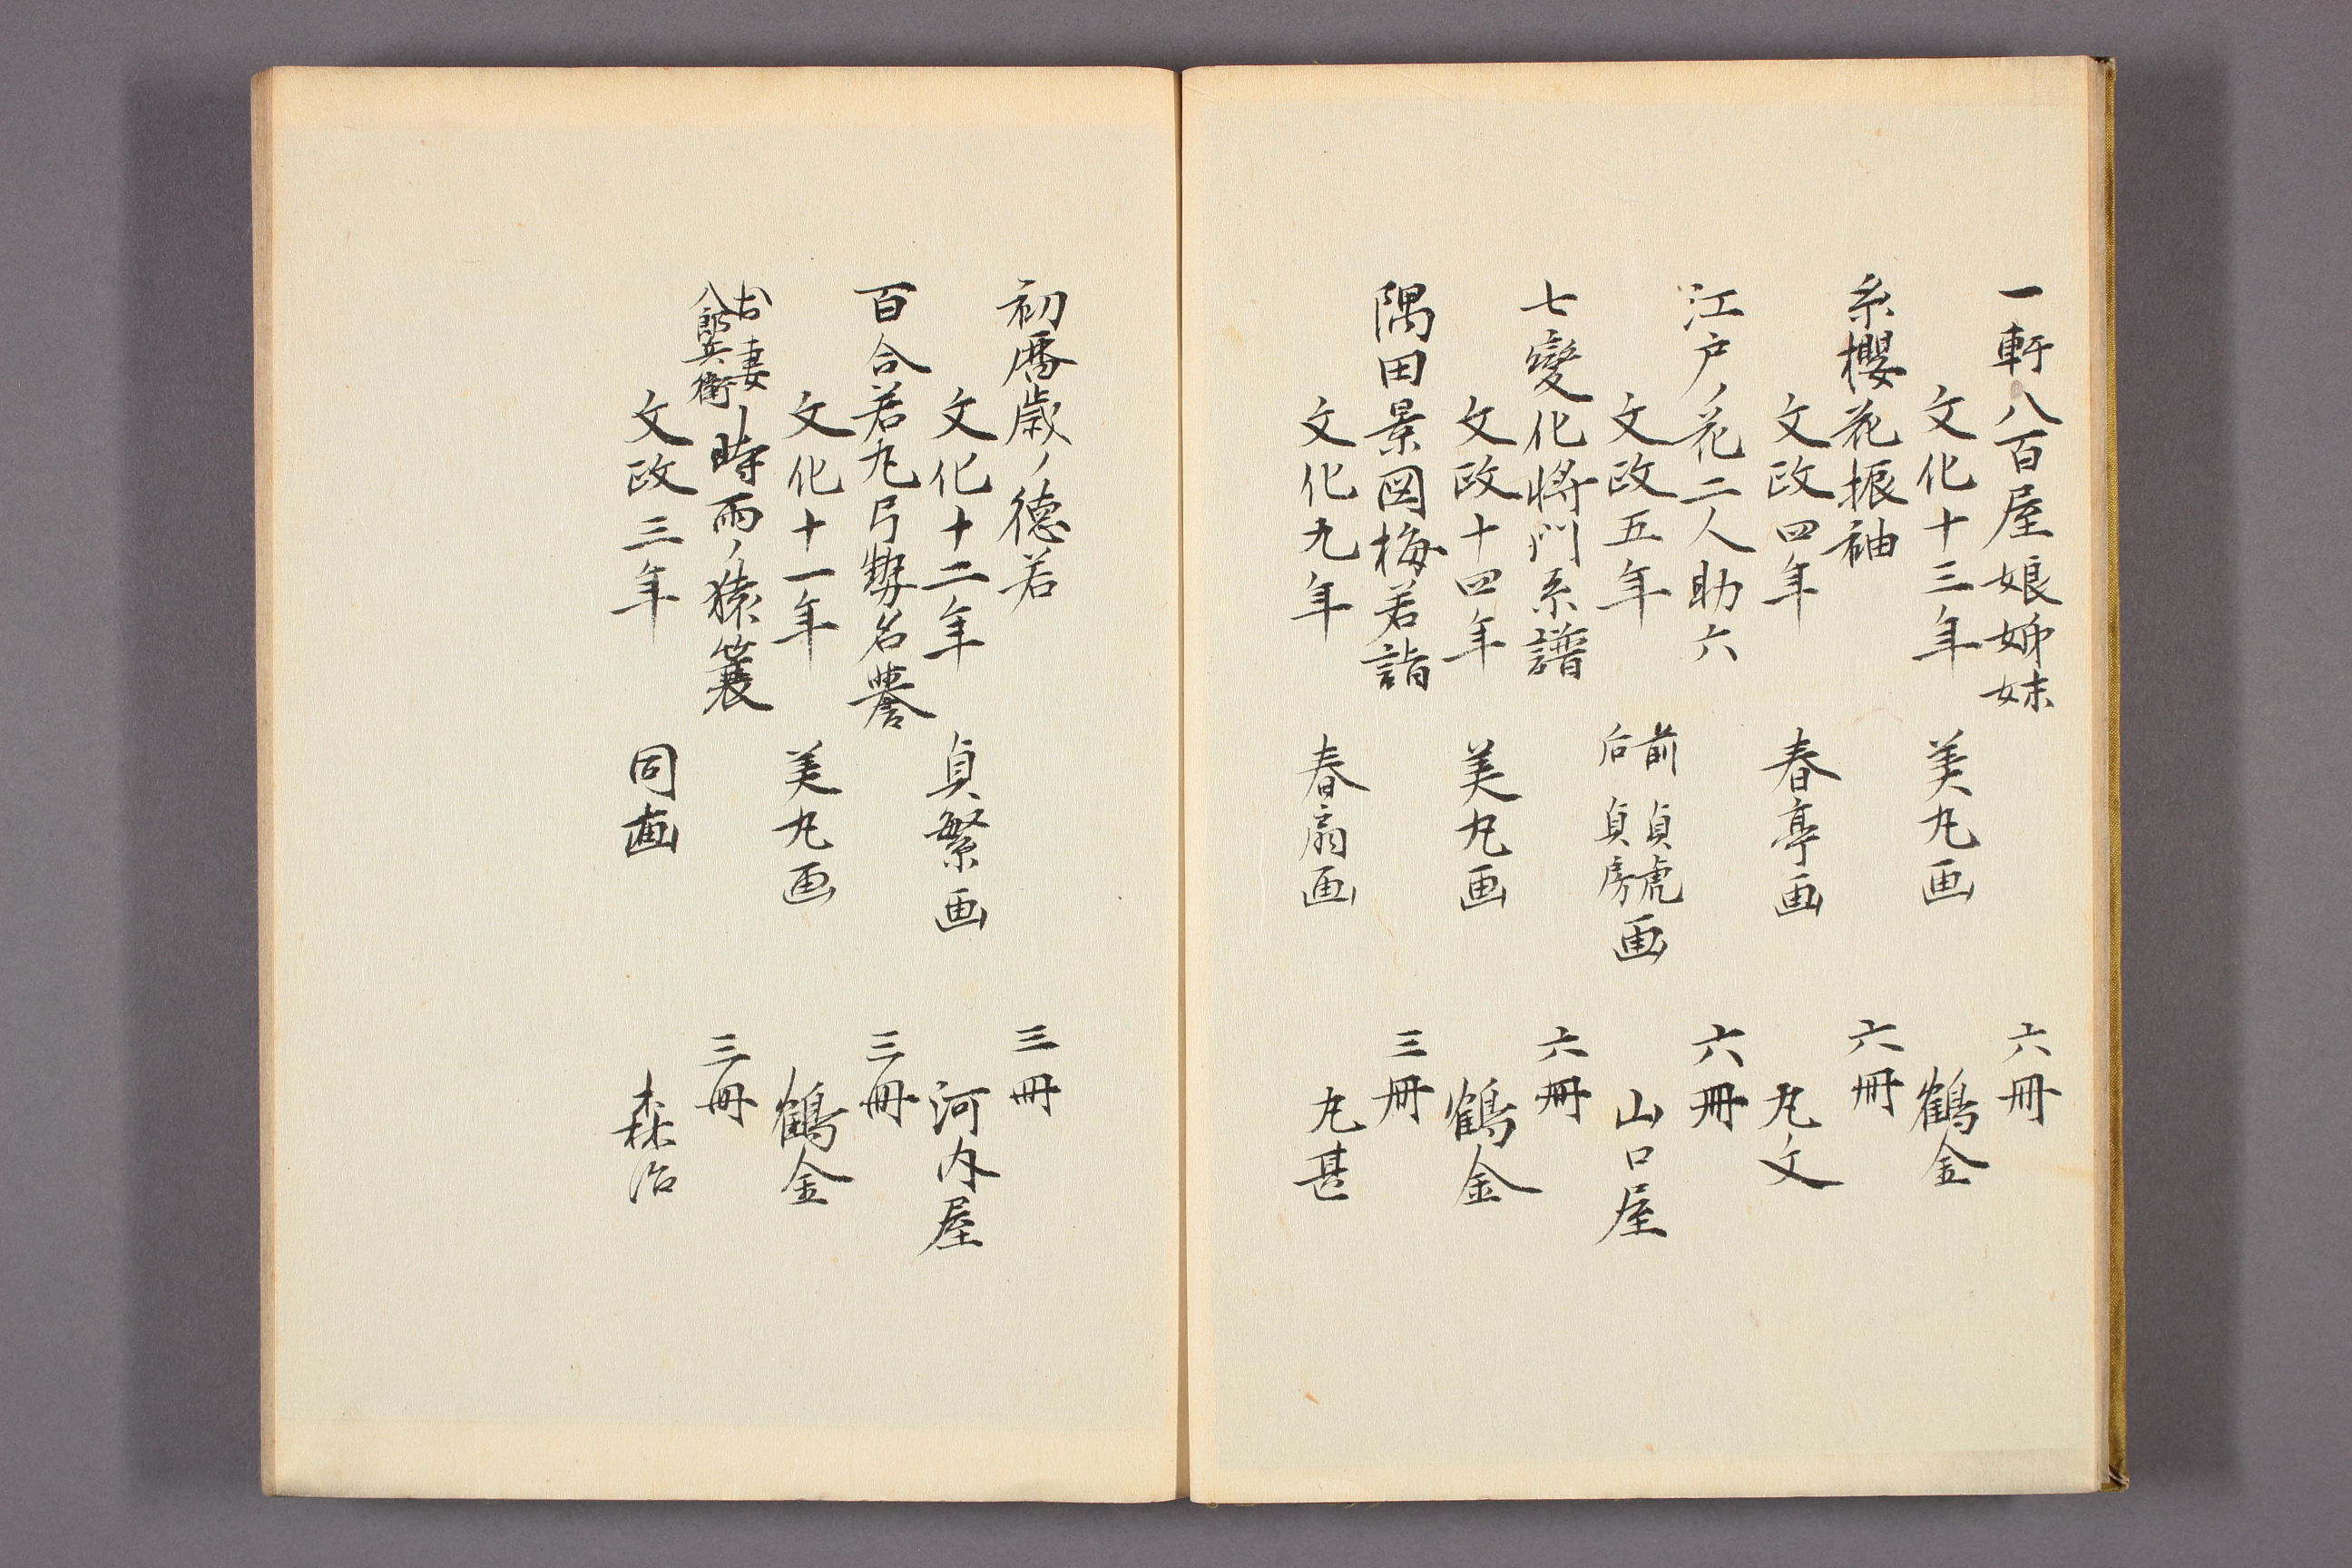 一軒八百屋娘姉妹 六冊
文化十三年 美丸画 鶴金
糸櫻花振袖 六冊
文政四年 春亭画 丸文
江戸ノ花二人助六 六冊
文政五年 前 貞虎 后 貞房 画 山口屋
七變化將門系譜 六冊
文政十四年 美丸画 鶴金
隅田景図梅若詣 三冊
文化九年 春扇画 丸甚
初暦歳ノ徳若 三冊
文化十二年 貞繁画 河内屋
百合若丸弓勢名誉 三冊
文化十一年 美丸画 鶴金
お妻 八郎兵衛 時雨ノ猿簑 三冊
文政三年 同画 森治